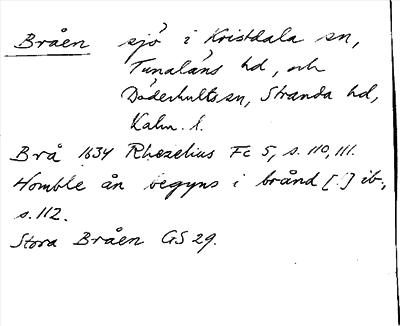 Bråen sjö i Kristdala sn,
Tunaläns hd, och
Döderhults sn, Stranda hd,
Kalm. l.
Brå 1634 Rhezelius Fc 5, s. 110, 111.
Homble ån begyns i brånd [!] ib,
s. 112.
Stora Bråen GS 29.